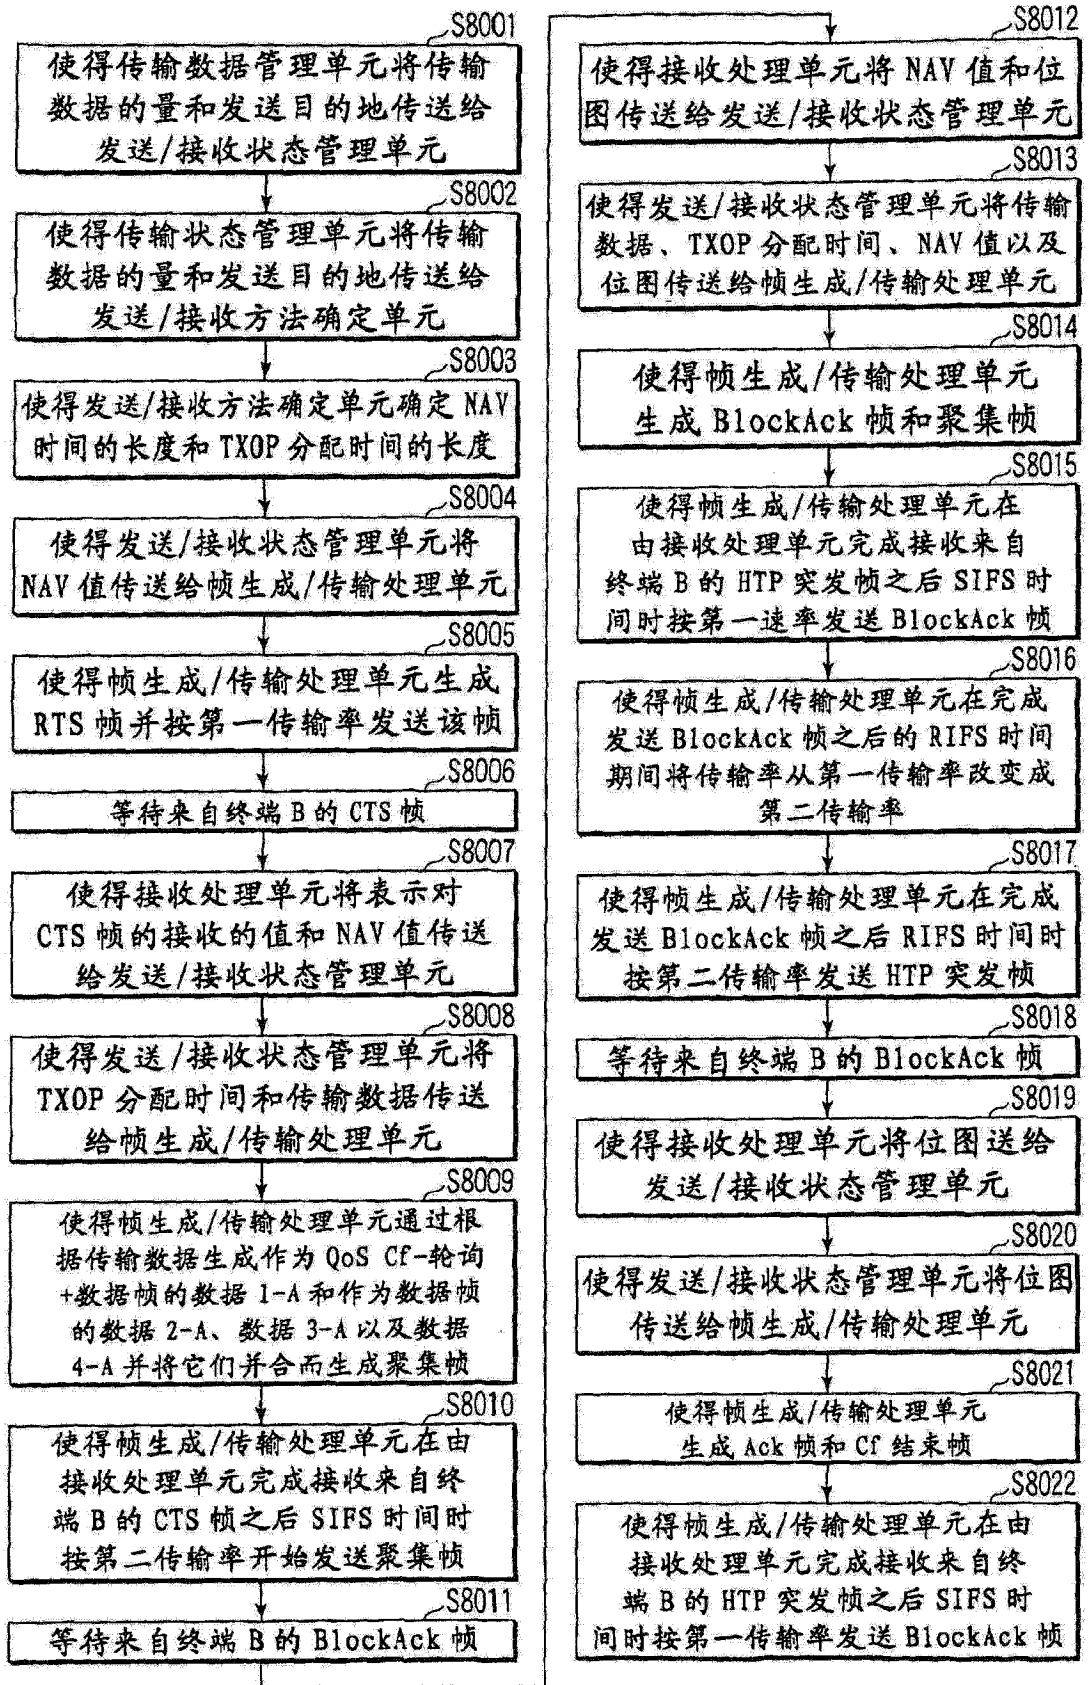 S8001
使得传输数据管理单元将传输
数据的量和发送目的地传送给
发送/接收状态管理单元
S8002
使得传输状态管理单元将传输
数据的量和发送目的地传送给
发送/接收方法确定单元
S8003
使得发送/接收方法确定单元确定 NAV
时间的长度和 TXOP 分配时间的长度
S8004
使得发送/接收状态管理单元将
NAV 值传送给帧生成/传输处理单元
S8005
使得帧生成/传输处理单元生成
RTS 帧并按第一传输率发送该帧
S8006
等待来自终端 B 的 CTS 帧
S8007
使得接收处理单元将表示对
CTS 帧的接收的值和 NAV 值传送
给发送/接收状态管理单元
S8008
使得发送/接收状态管理单元将
TXOP 分配时间和传输数据传送
给帧生成/传输处理单元
S8009
使得帧生成/传输处理单元通过根
据传输数据生成作为 QoS Cf-轮询
+数据帧的数据 1-A 和作为数据帧
的数据 2-A、数据 3-A 以及数据
4-A 并将它们并合而生成聚集帧
S8010
使得帧生成/传输处理单元在由
接收处理单元完成接收来自终
端 B 的 CTS 帧之后 SIFS 时间时
按第二传输率开始发送聚集帧
S8011
等待来自终端 B 的 BlockAck 帧
S8012
使得接收处理单元将 NAV 值和位
图传送给发送/接收状态管理单元
S8013
使得发送/接收状态管理单元将传输
数据、TXOP 分配时间、NAV 值以及
位图传送给帧生成/传输处理单元
S8014
使得帧生成/传输处理单元
生成 BlockAck 帧和聚集帧
S8015
使得帧生成/传输处理单元在
由接收处理单元完成接收来自
终端 B 的 HTP 突发帧之后 SIFS 时
间时按第一速率发送 BlockAck 帧
S8016
使得帧生成/传输处理单元在完成
发送 BlockAck 帧之后的 RIFS 时间
期间将传输率从第一传输率改变成
第二传输率
S8017
使得帧生成/传输处理单元在完成
发送 BlockAck 帧之后 RIFS 时间时
按第二传输率发送 HTP 突发帧
S8018
等待来自终端 B 的 BlockAck 帧
S8019
使得接收处理单元将位图送给
发送/接收状态管理单元
S8020
使得发送/接收状态管理单元将位图
传送给帧生成/传输处理单元
S8021
使得帧生成/传输处理单元
生成 Ack 帧和 Cf 结束帧
S8022
使得帧生成/传输处理单元在由
接收处理单元完成接收来自终
端 B 的 HTP 突发帧之后 SIFS 时
间时按第一传输率发送 BlockAck 帧